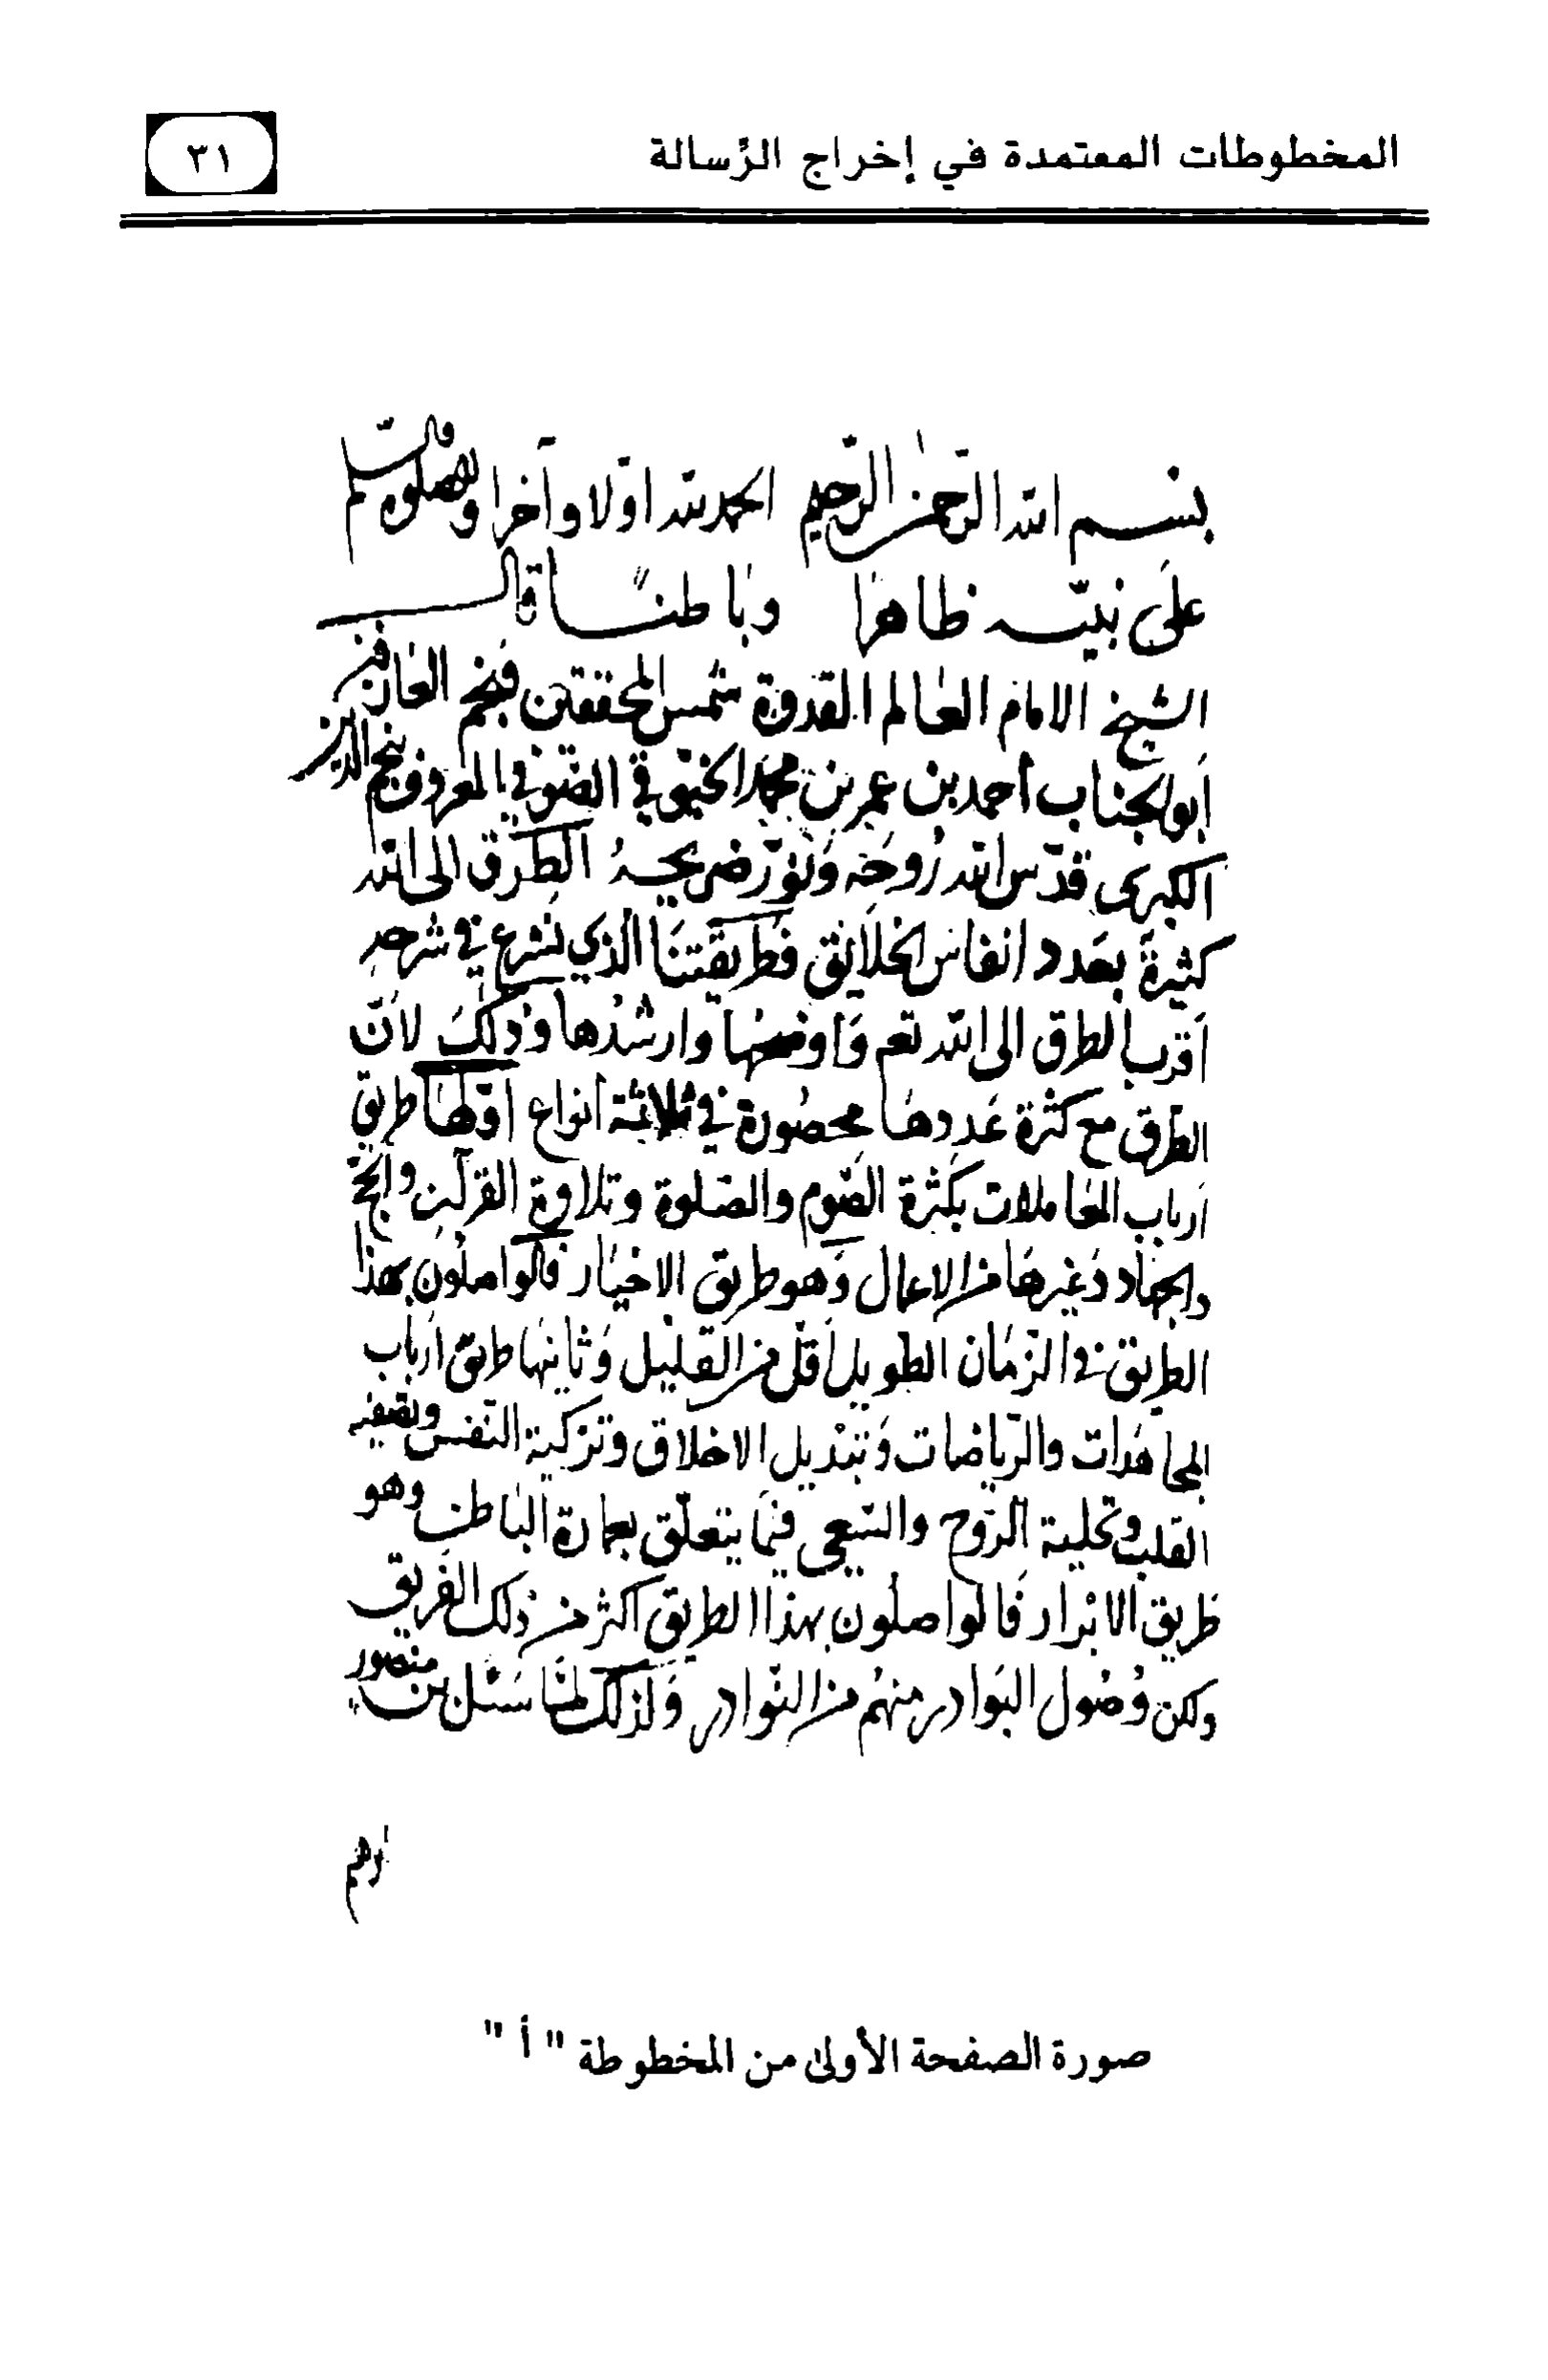 المخطوطات المعتمدة في إخراج الرِّسالة
٣١
بسم الله الرحمن الرحيم الحمد لله اوّلا وآخرا والصلوة والسلم
على نبيّه ظاهرا وباطنًا قال
الشيخ الامام العالم القدوة شمس المحققين نجم العارفين
أبو الجناب أحمد بن عمر بن محمّد الخيوقي الصّوفي بالمعروف بنجم الدين
الكبرى قدّس الله رُوحَه وَنوّر ضريحهُ الطرق الى الله
كثيرةَ بعَدد انفاس الخلَائق فَطريقتنَا الّذي نَشرع في شرحهِ
اَقرب الطرق الى الله تعم وَاوضحهَا وارشدها وذلكَ لاَنّ
الطرق مع كثرة عَددهَا محصُورة في ثلاثة أنواع اوّلهَا طريق
اَرباب المعَاملات بكَثرة الصّوم والصّلوة وتلاوة القرآن والحجّ
والجهَاد وَغيرهَا من الاعمال وَهو طريق الاخيَار فالواصلون بهذا
الطريق في الزمَان الطويل اَقلّ من القليل وَثانيهَا طريق اَرباب
المجاهَدات والرّياضات وَتبْديل الاخلاق وتزكية النّفس وتصفية
القلب وتحلية الرّوح والسّعي فيمَا يتعلّق بعمارة البَاطن وهو
طريق الابْرار فَالواصلُون بهذا الطريق اكثر من ذلك الفَريق
ولكن وُصُول البَوادر منهُم من النّوادر وَلذلك لمّا سَئل ابن منصور
ابرهم
صورة الصفحة الأولى من المخطوطة " أ "